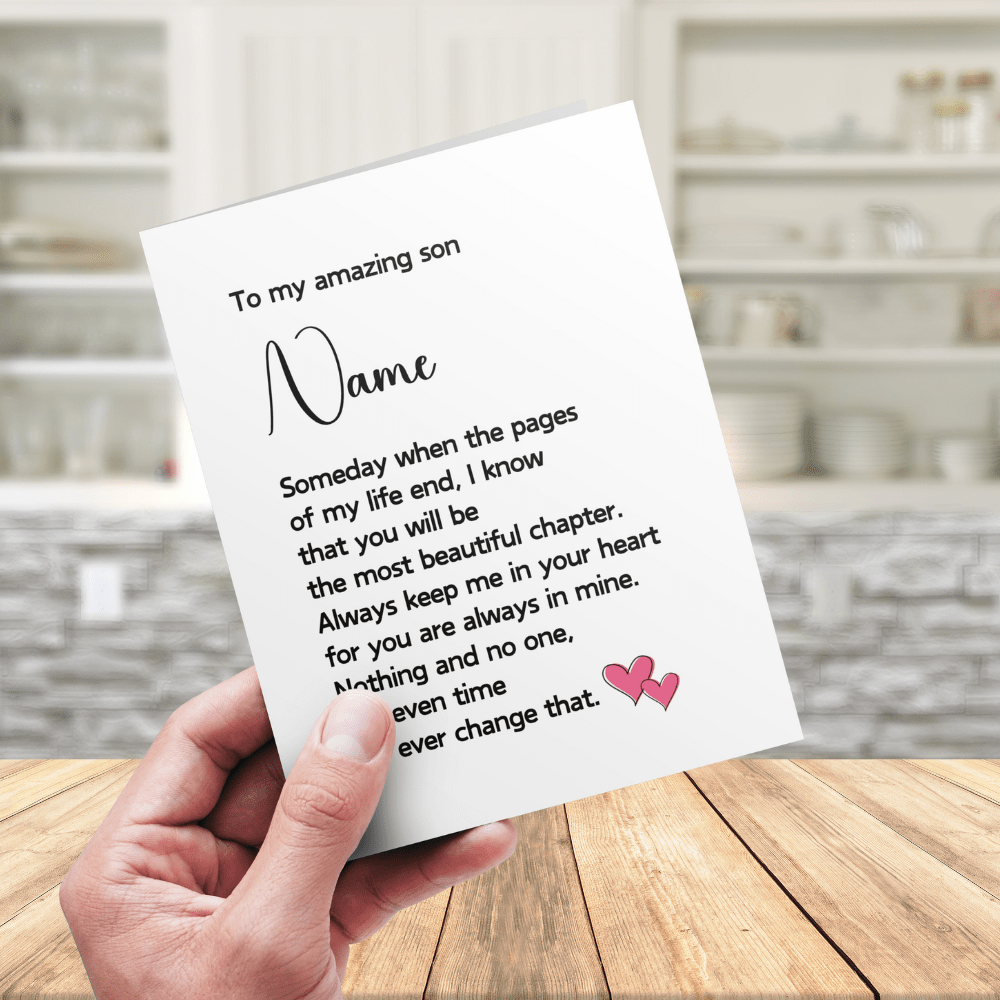 To my amazing son
Name
Someday when the pages
of my life end, I know
that you will be
the most beautiful chapter.
Always keep me in your heart
for you are always in mine.
Nothing and no one,
even time
ever change that.